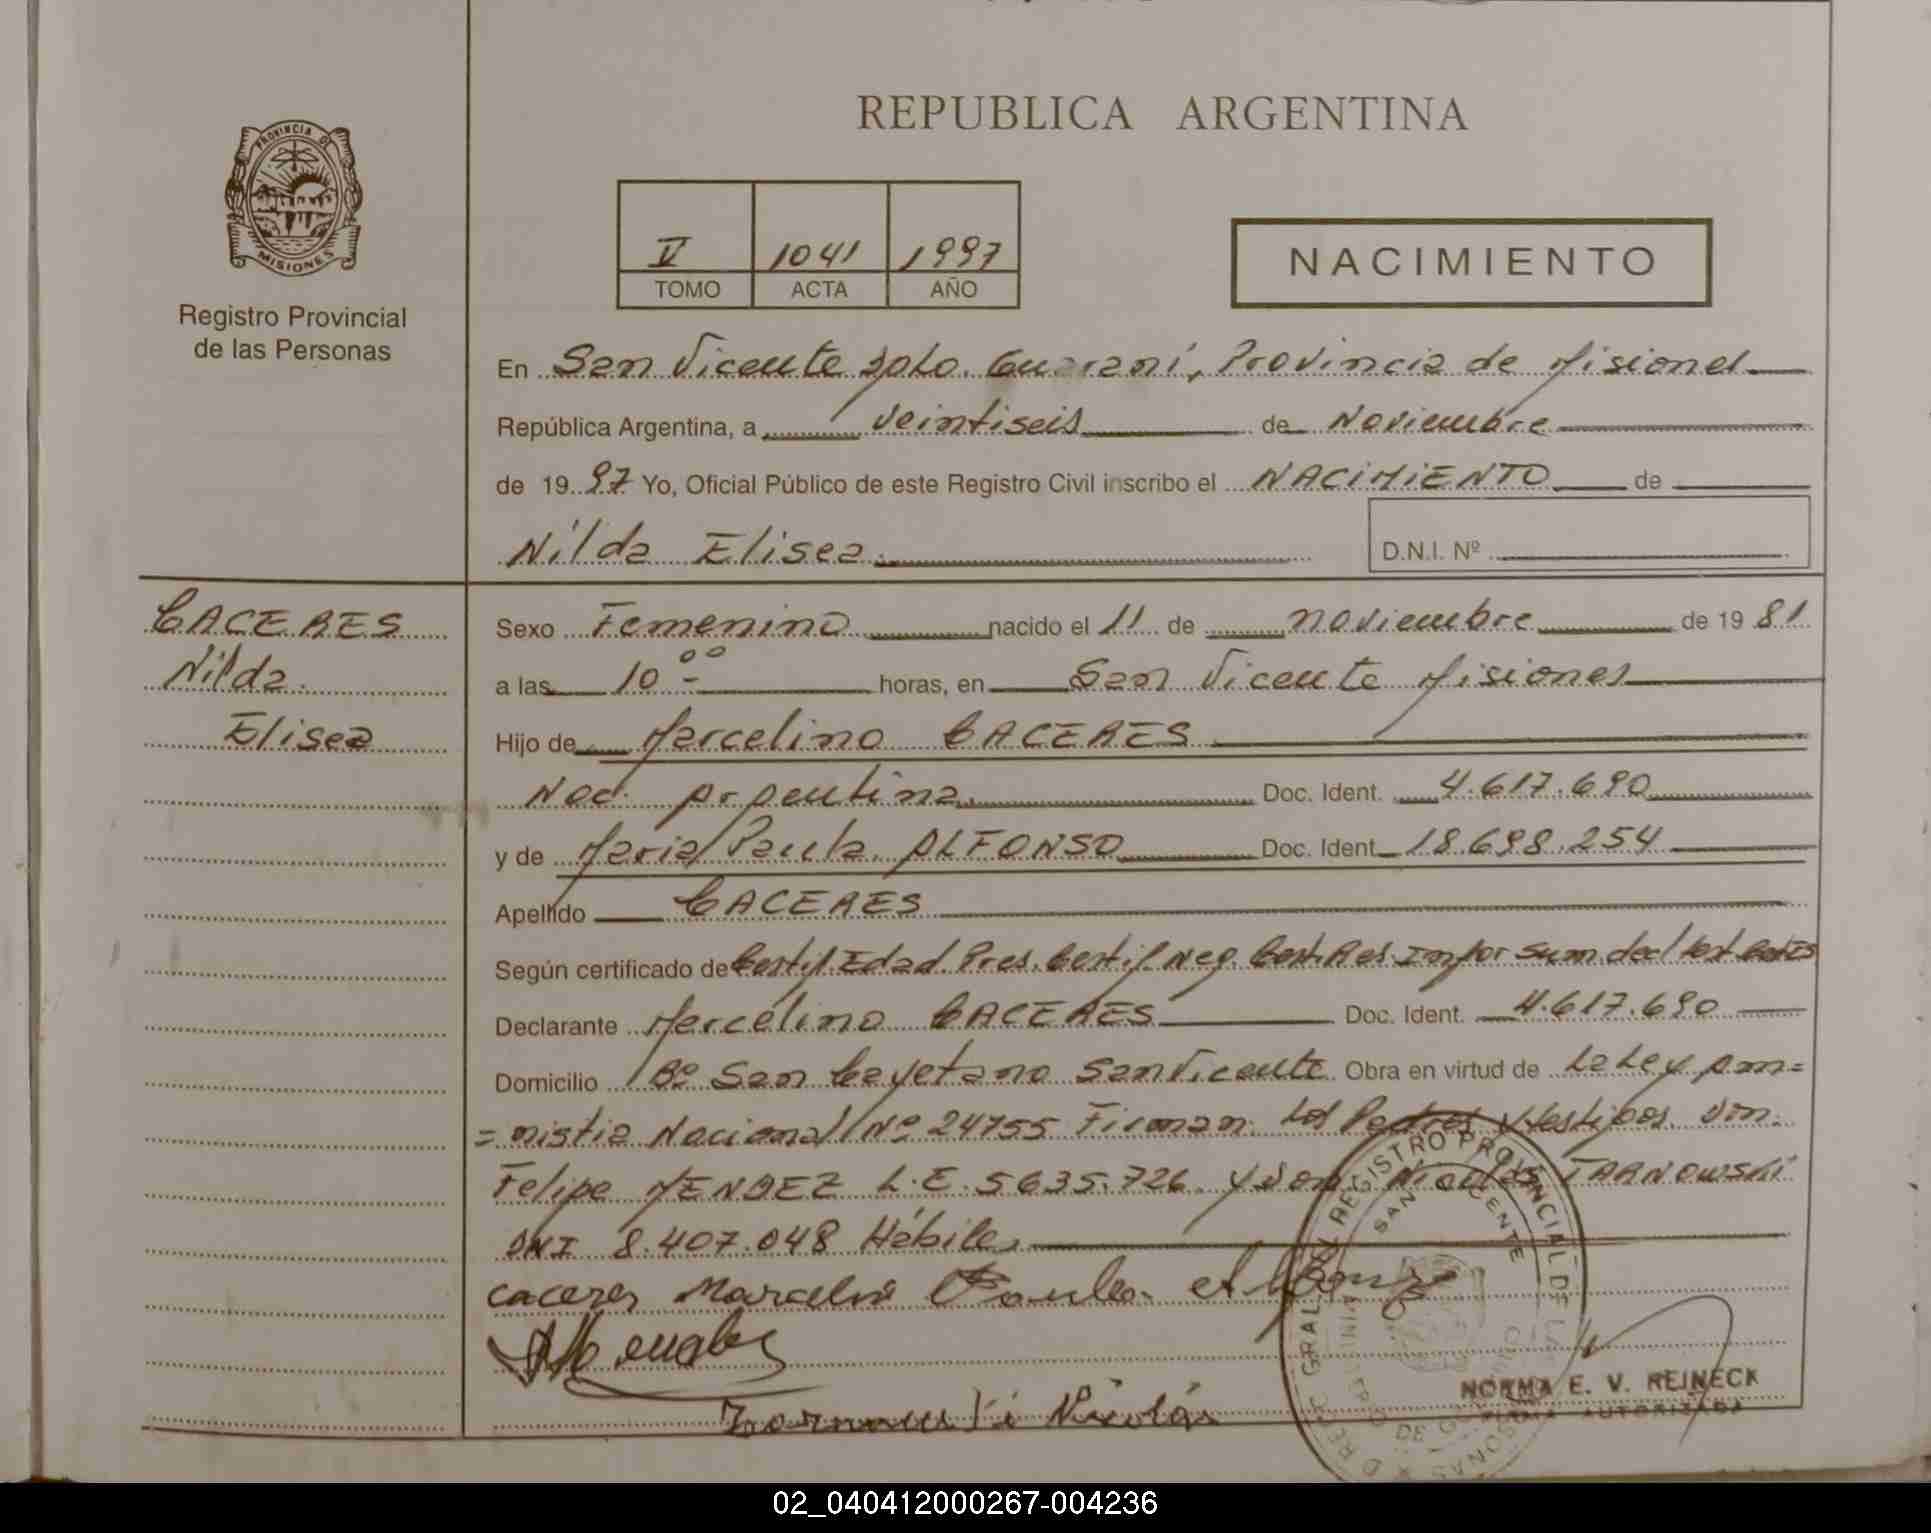 REPUBLICA ARGENTINA
PROVINCIA DE
MISIONES
Registro Provincial
de las Personas
V 1041 1997
TOMO ACTA AÑO
NACIMIENTO
En San Vicente Dpto. Guaraní, Provincia de Misiones
República Argentina, a veintiseis de Noviembre
de 1997 Yo, Oficial Público de este Registro Civil inscribo el NACIMIENTO de
Nilda Elisea. D.N.I. Nº
CACERES
Nilda
Elisea
Sexo Femenino nacido el 11 de noviembre de 1981
a las 10 00 horas, en San Vicente Misiones
Hijo de Marcelino CACERES
Nac. Argentina Doc. Ident. 4.617.690
y de Maria Paula ALFONSO Doc. Ident. 18.698.254
Apellido CACERES
Según certificado de Certif. Edad Pres. Certif. Neg. Cert. Res. Infor Sum. decl test
Declarante Marcelino CACERES Doc. Ident. 4.617.690
Domicilio Bº San Cayetano San Vicente Obra en virtud de La Ley Am=
=nistia Nacional Nº 24755 Firman Los Padres y testigos. Don
Felipe MENDEZ L.E. 5.635.726 y Don Nicolas TARNOWSKI
DNI 8.407.048 Hábiles
caceres Marcelin Paula Alfonzo
Tarnowski Nicolás
REGISTRO PROVINCIAL DE LAS
SAN VICENTE
NORMA E. V. REINECK
FIRMA AUTORIZADA
02_040412000267-004236